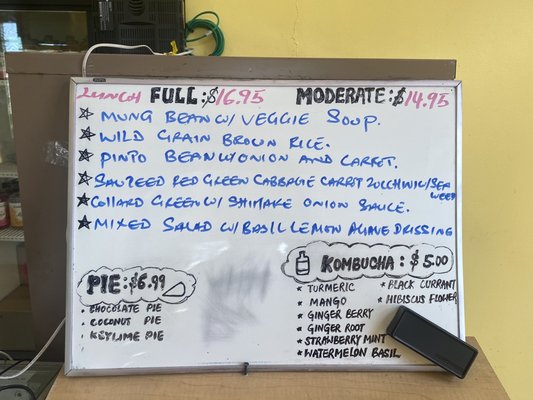 LUNCH FULL:$16.95 MODERATE:$14.95
☆ MUNG BEAN W/ VEGGIE SOUP.
☆ WILD GRAIN BROWN RICE.
☆ PINTO BEAN W/ONION AND CARROT.
☆ SAUTEED RED GREEN CABBAGE CARROT ZUCCHWIL/SEA WEED
★ COLLARD GREEN W/ SHITAKE ONION SAUCE.
★ MIXED SALAD W/BASIL LEMON AGAVE DRISSING
PIE:$6.99
• CHOCOLATE PIE
• COCONUT PIE
• KEYLIME PIE
KOMBUCHA : $5.00
* TURMERIC
* MANGO
* GINGER BERRY
* GINGER ROOT
* STRAWBERRY MINT
* WATERMELON BASIL
* BLACK CURRANT
* HIBISCUS FLOWER